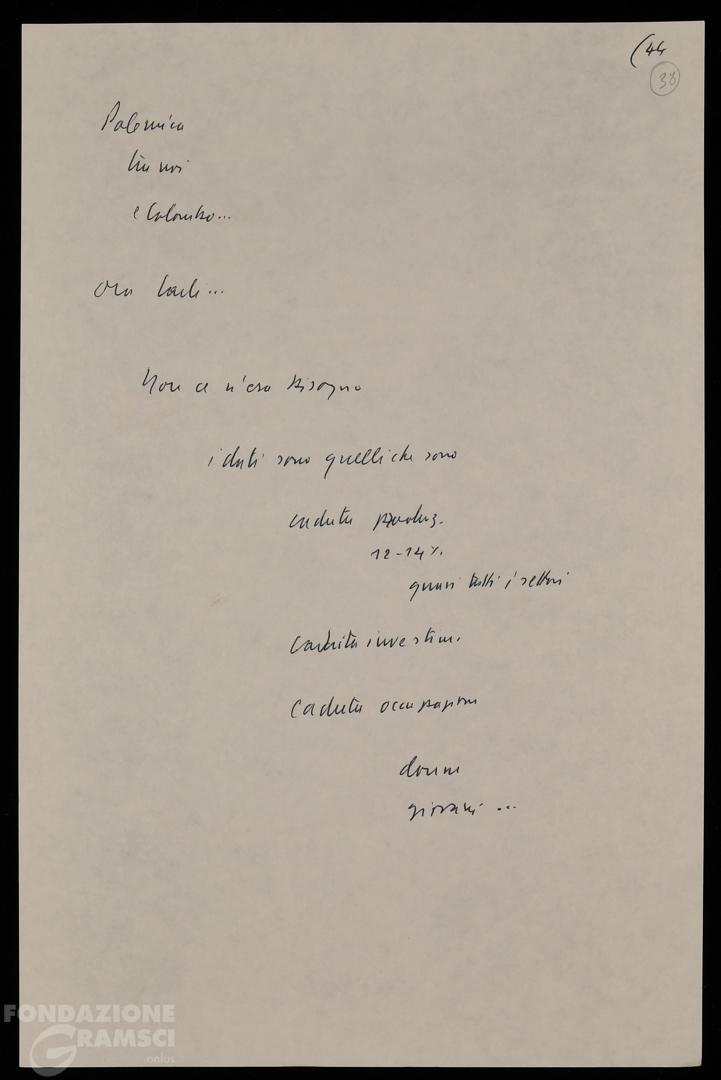 (44
38
Polemica
tra noi
e Colombo...
Ora Carli...
Non ce n'era bisogno
i dati sono quelli che sono
caduta produz.
12-14%.
quasi tutti i settori
caduta investim.
Caduta occupazione
donne
giovani ...
FONDAZIONE
GRAMSCI
onlus